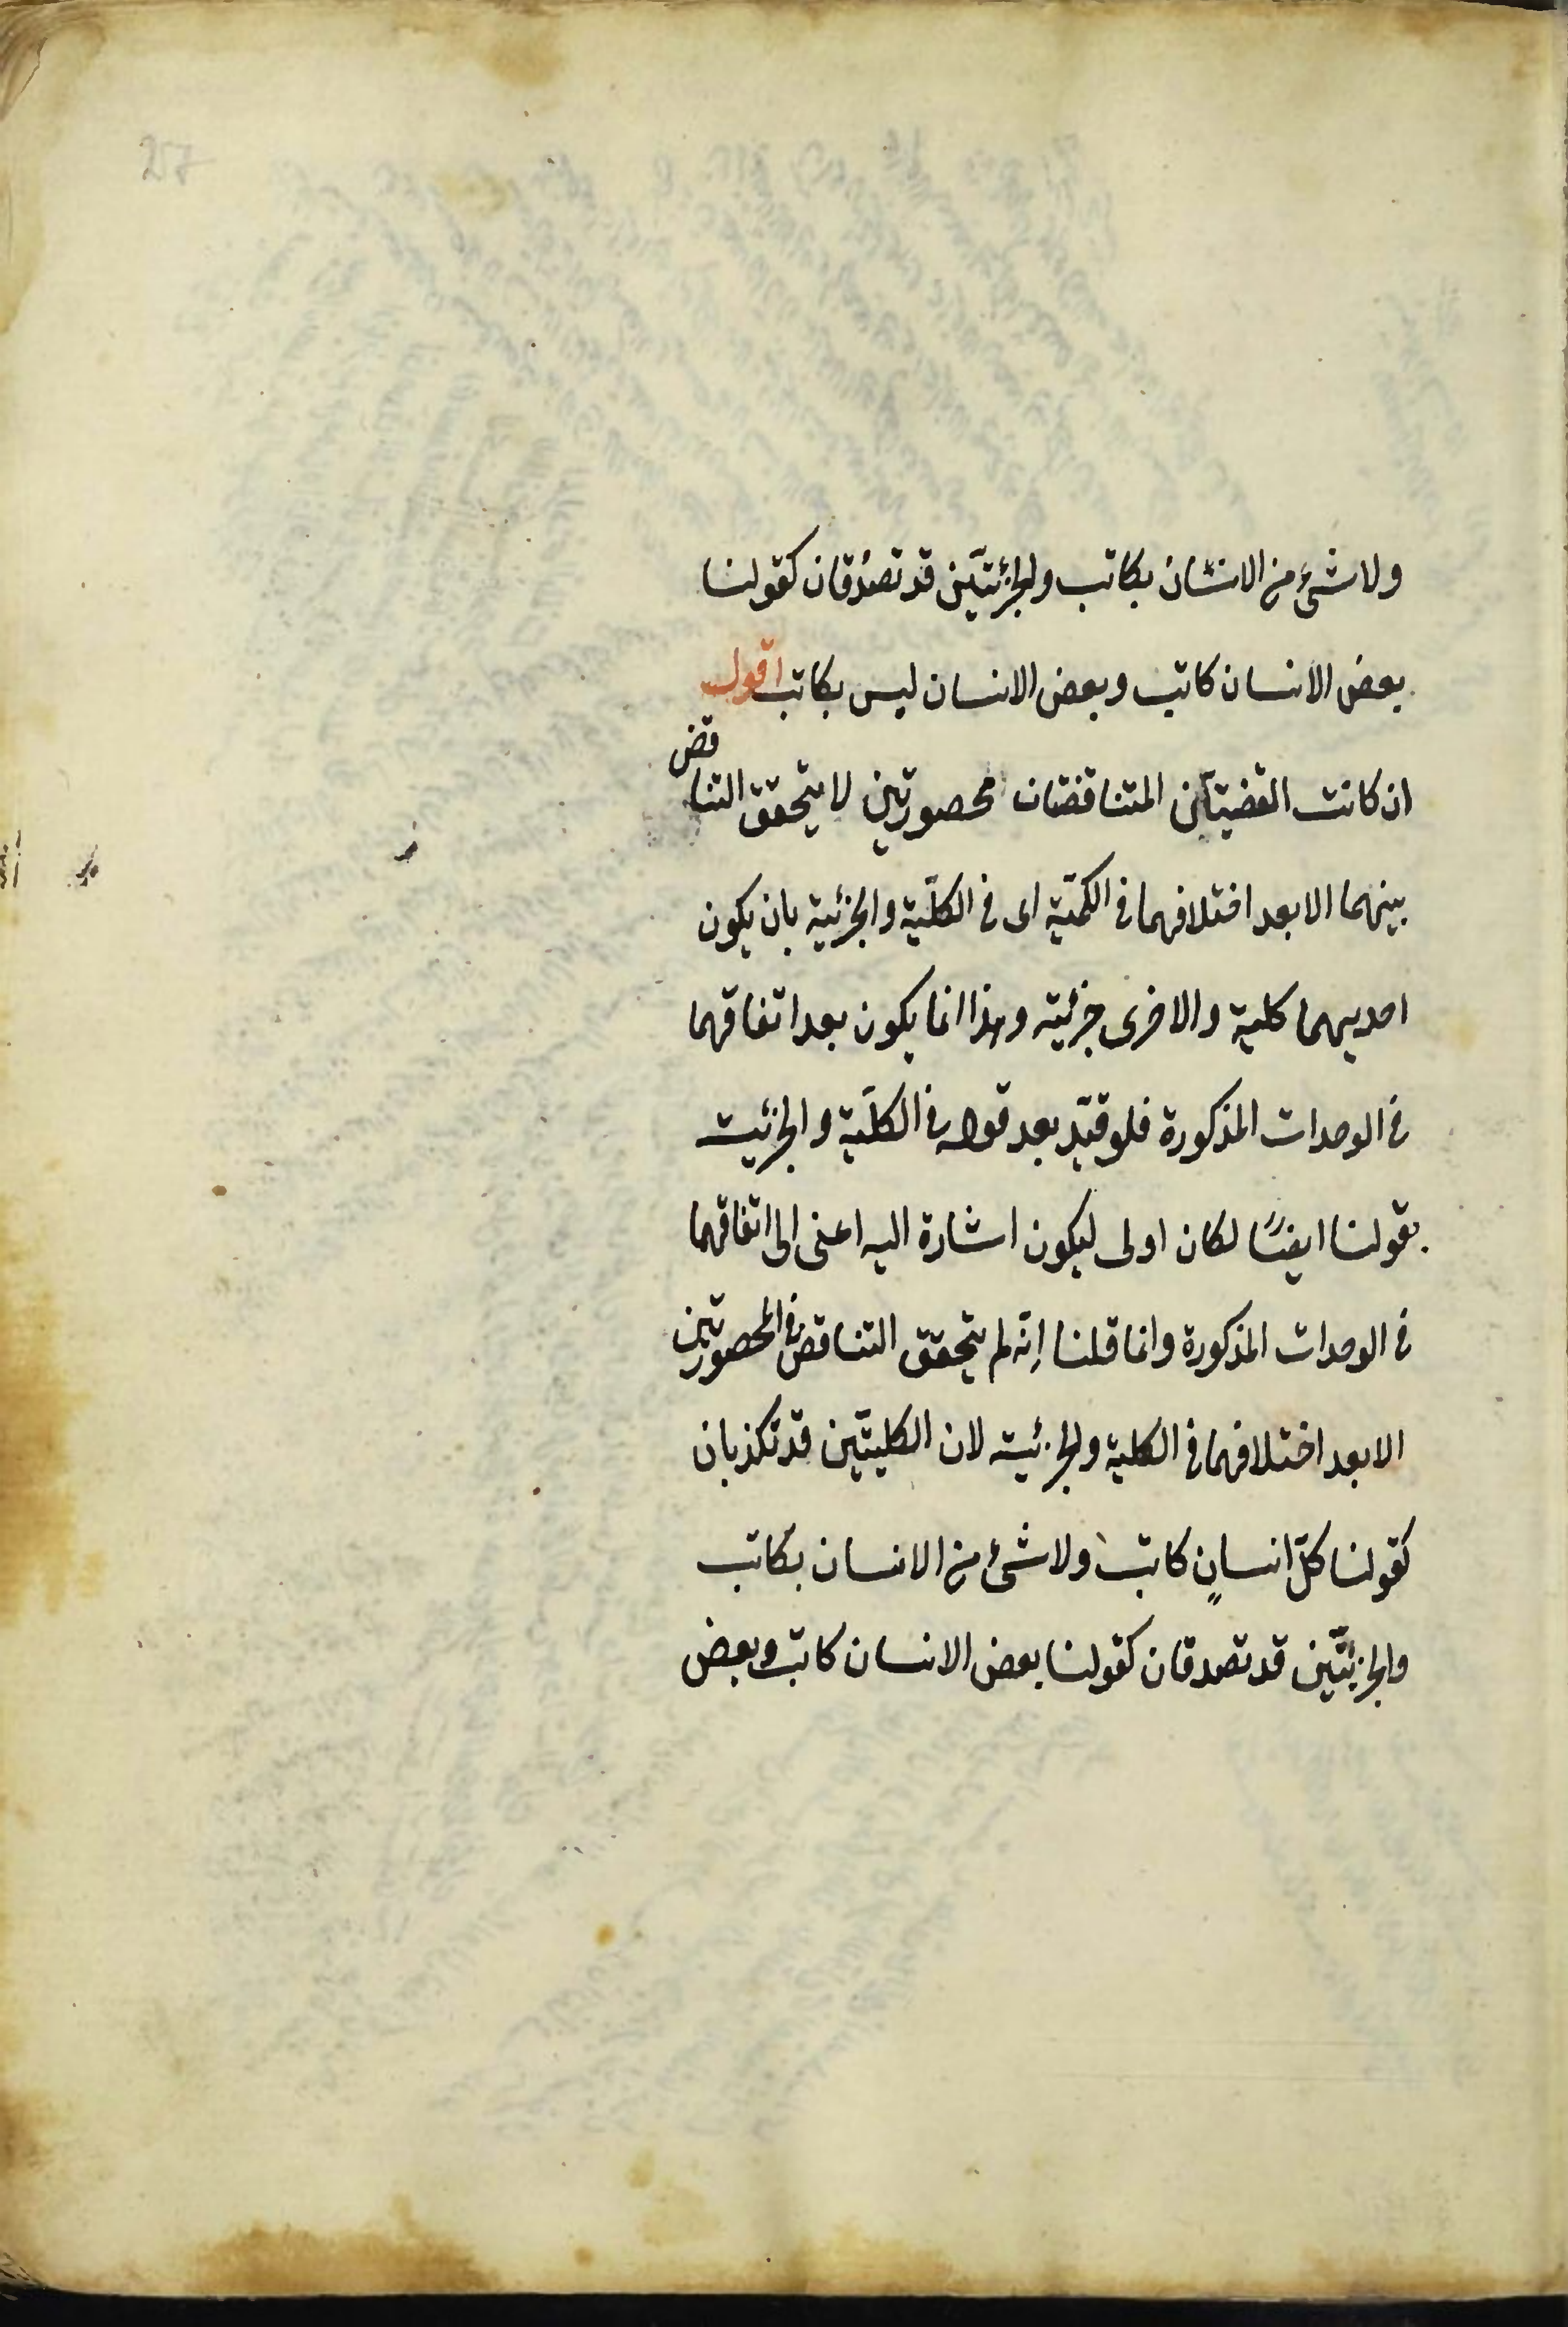 ولا شئ من الانسان بكاتب والجزئيتين قد تصدقان كقولنا
بعض الانسان كاتب وبعض الانسان ليس بكاتب اقول
ان كانت القضيتان المتناقضتان محصورتين لا يتحقق التناقض
بينهما الا بعد اختلافهما فى الكميّة اى فى الكلّية والجزئية بان يكون
احديهما كلية والاخرى جزئية وهذا انما يكون بعد اتفاقهما
فى الوحدات المذكورة فلو قيّد بعد قوله فى الكلّية والجزئيت
بقولنا ايضًا لكان اولى ليكون اشارة اليه اعنى الى اتفاقهما
فى الوحدات المذكورة وانما قلنا إنّه لم يتحقق التناقض فى المحصورتين
الا بعد اختلافهما فى الكلية والجزئية لان الكليتين قد تكذبان
كقولنا كلّ انسانٍ كاتب ولا شئ من الانسان بكاتب
والجزئيّتين قد تصدقان كقولنا بعض الانسان كاتب وبعض